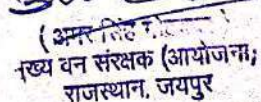 (अमर सिंह
ख्य वन संरक्षक (आयोजना)
राजस्थान, जयपुर